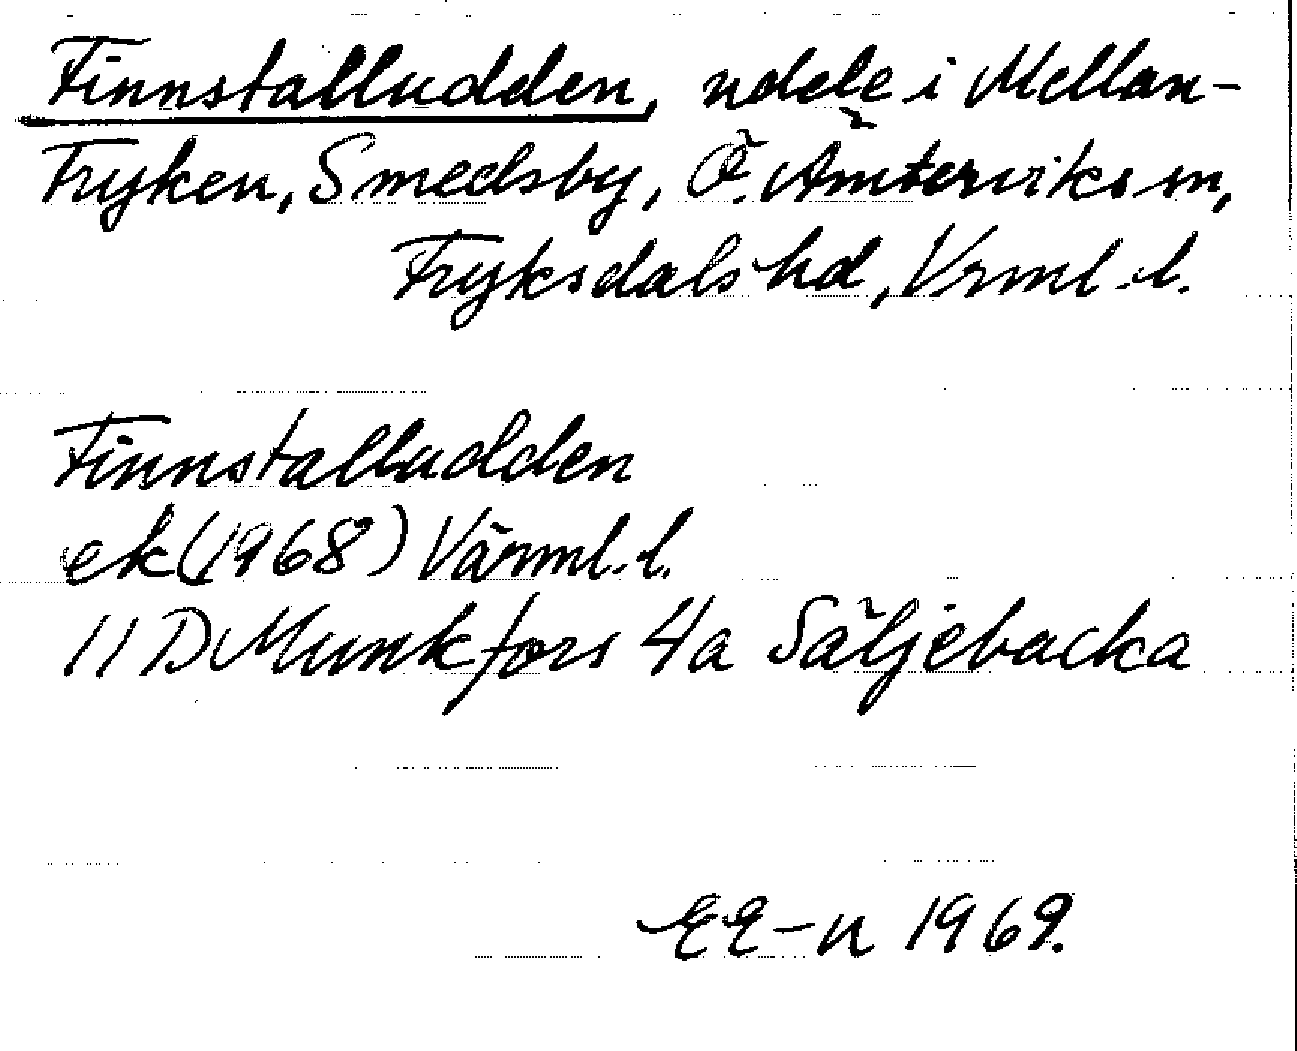 Finnstalludden, udde i Mellan-
Fryken, Smedsby, Ö. Ämterviks sn,
Fryksdals hd, Vrml. l.
Finnstalludden
ek (1968) Värml. l.
11 D Munkfors 4a Säljebacka
EE-n 1969.